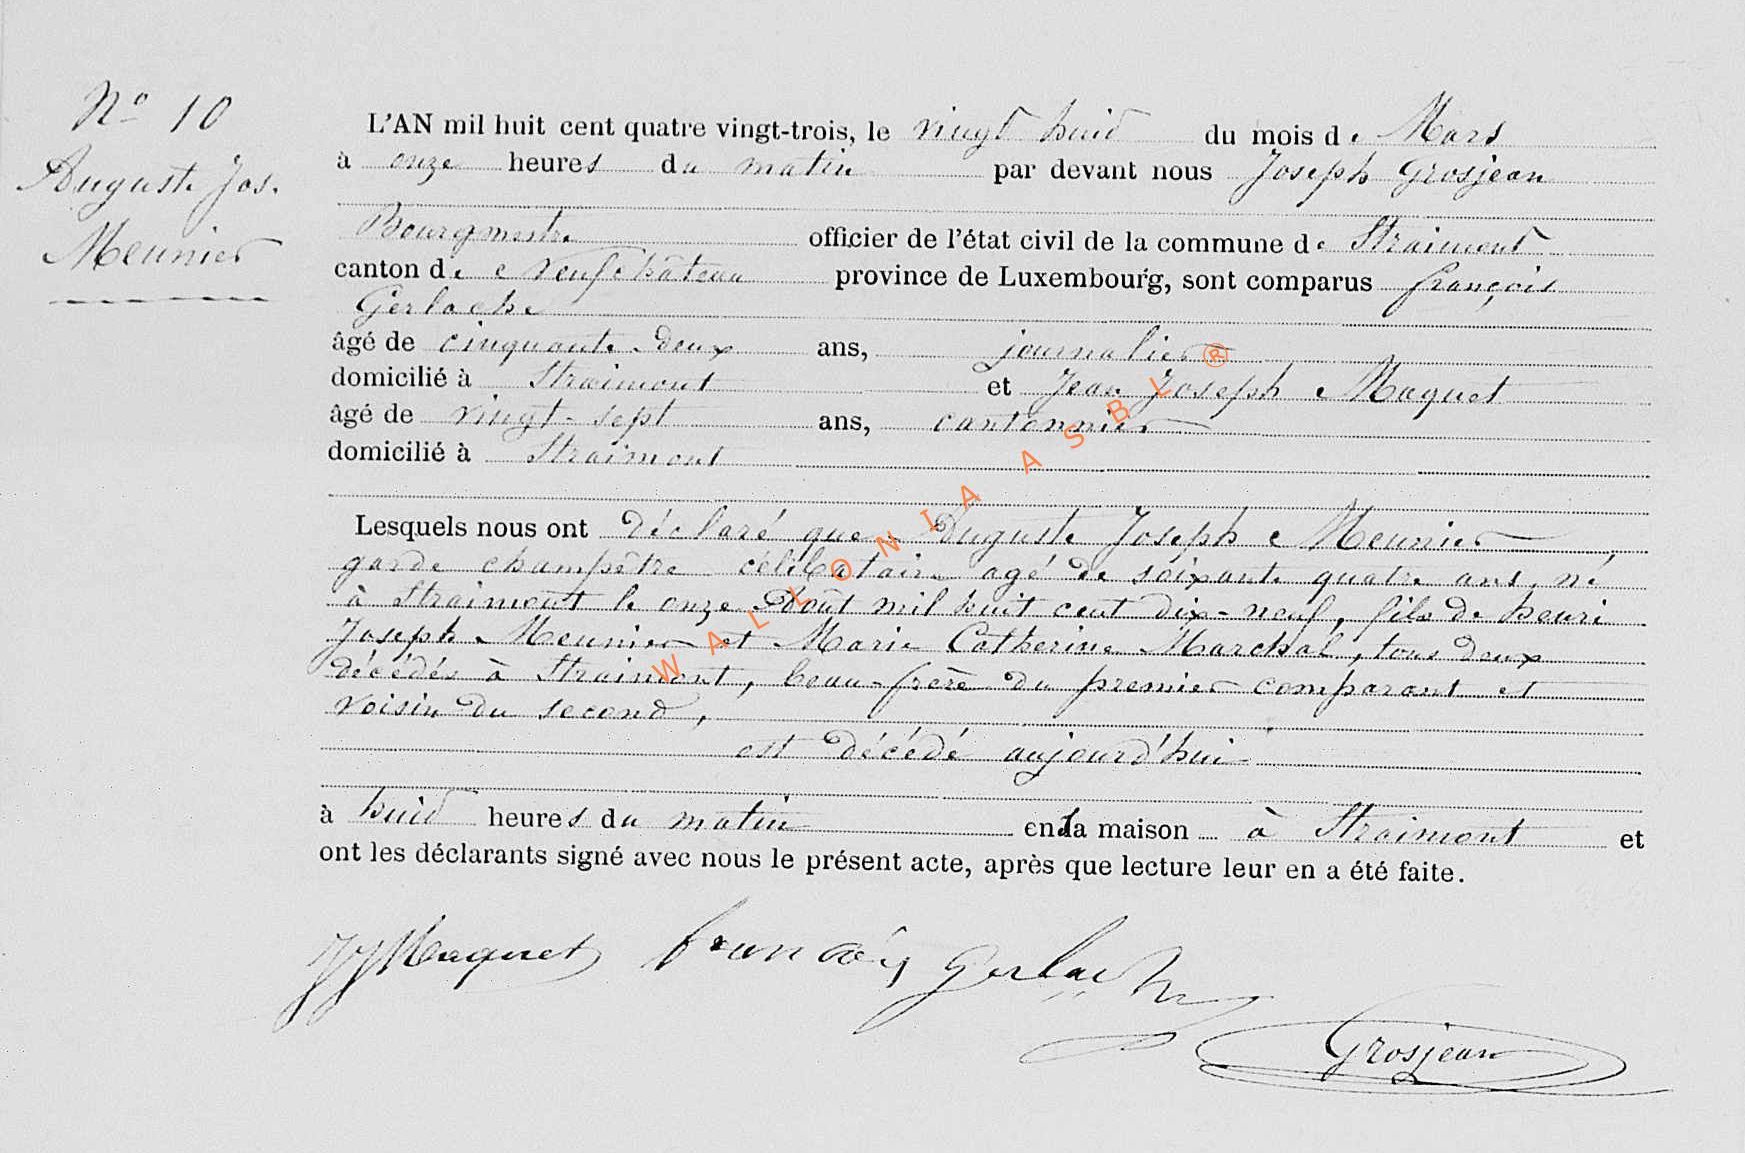 Nº 10
Auguste Jos.
Meunier
L'AN mil huit cent quatre vingt-trois, le vingt huit du mois de Mars
à onze heures du matin par devant nous Joseph Grosjean
Bourgmestre officier de l'état civil de la commune de Straimont
canton de Neufchâteau province de Luxembourg, sont comparus françois
Gerlache
âgé de cinquante-deux ans, journalier
domicilié à Straimont et Jean Joseph Maquet
âgé de vingt-sept ans, cantonnier
domicilié à Straimont
Lesquels nous ont déclaré que Auguste Joseph Meunier
garde champêtre célibataire agé de soixante quatre ans, né
à Straimont le onze Août mil huit cent dix-neuf, fils de henri
Joseph Meunier et Marie Catherine Marchal, tous deux
décédés à Straimont, beau-frère du premier comparant et
voisin du second,
est décédé aujourd'hui
à huit heures du matin en sa maison à Straimont et
ont les déclarants signé avec nous le présent acte, après que lecture leur en a été faite.
JJMaquet françois gerlache
Grosjean
WALLONIA ASBL ®